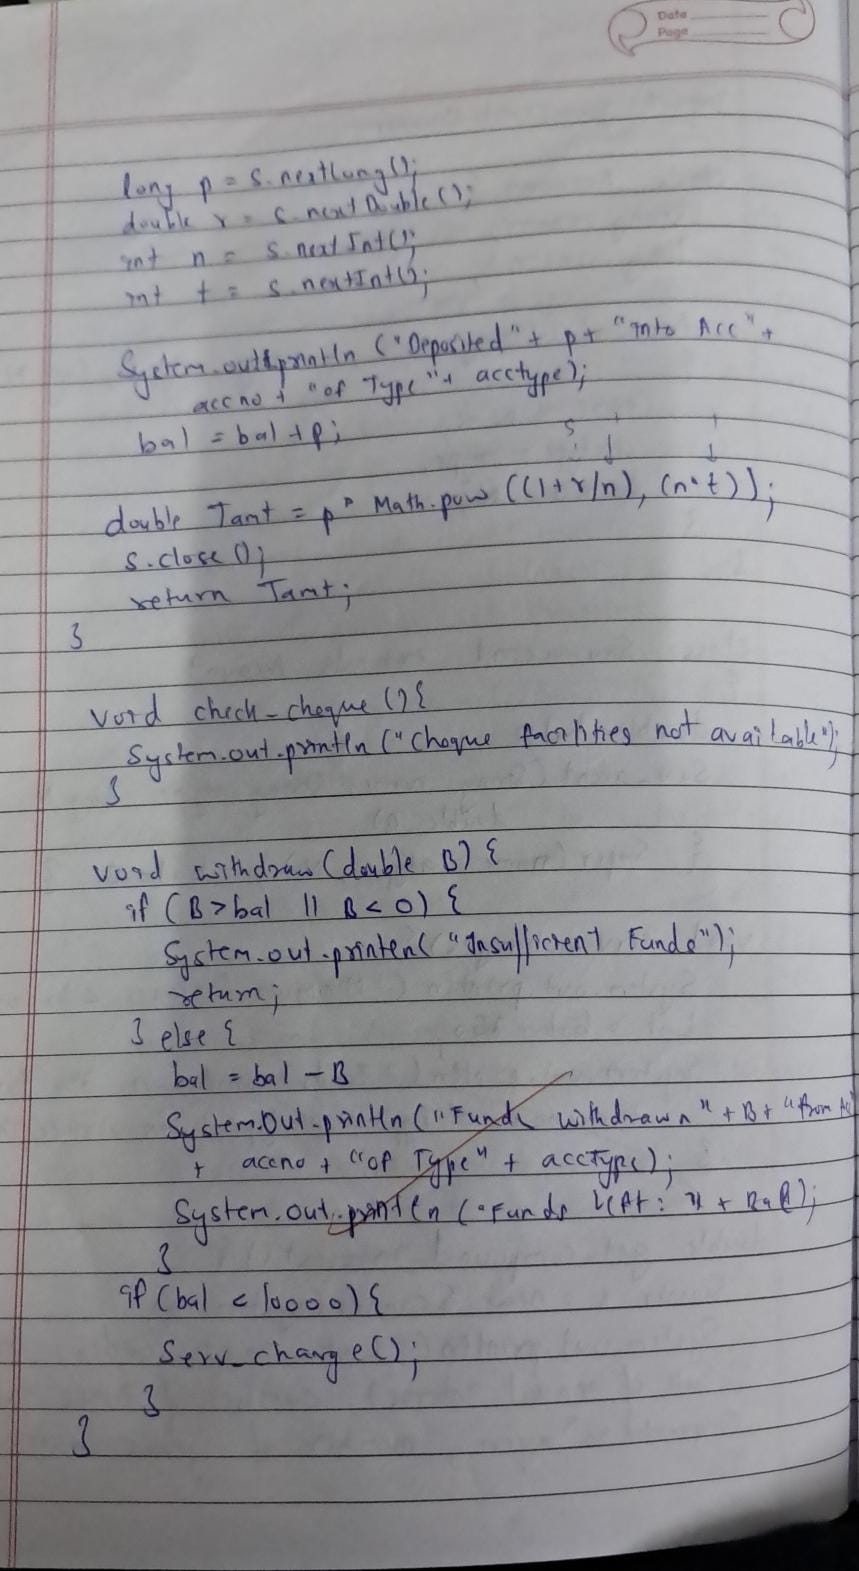 Date
Page
long p = s.nextLong();
double r = s.nextDouble();
int n = s.nextInt();
int t = s.nextInt();
System.out.println ("Deposited" + p + "Into Acc" +
accno + "of Type" + acctype);
bal = bal + p;
double Tamt = p * Math.pow ((1+r/n), (n*t));
s.close();
return Tamt;
}
void check-cheque () {
System.out.println ("Cheque facilities not available");
}
void withdraw (double B) {
if (B > bal || B < 0) {
System.out.println( "Insufficient Funds");
return;
} else {
bal = bal - B
System.Out.println ("Funds withdrawn" + B + "from Ac
+ accno + "of Type" + accType);
System.out.println ("Funds left: " + Bal);
}
if (bal < 10000) {
Serv_charge();
}
}